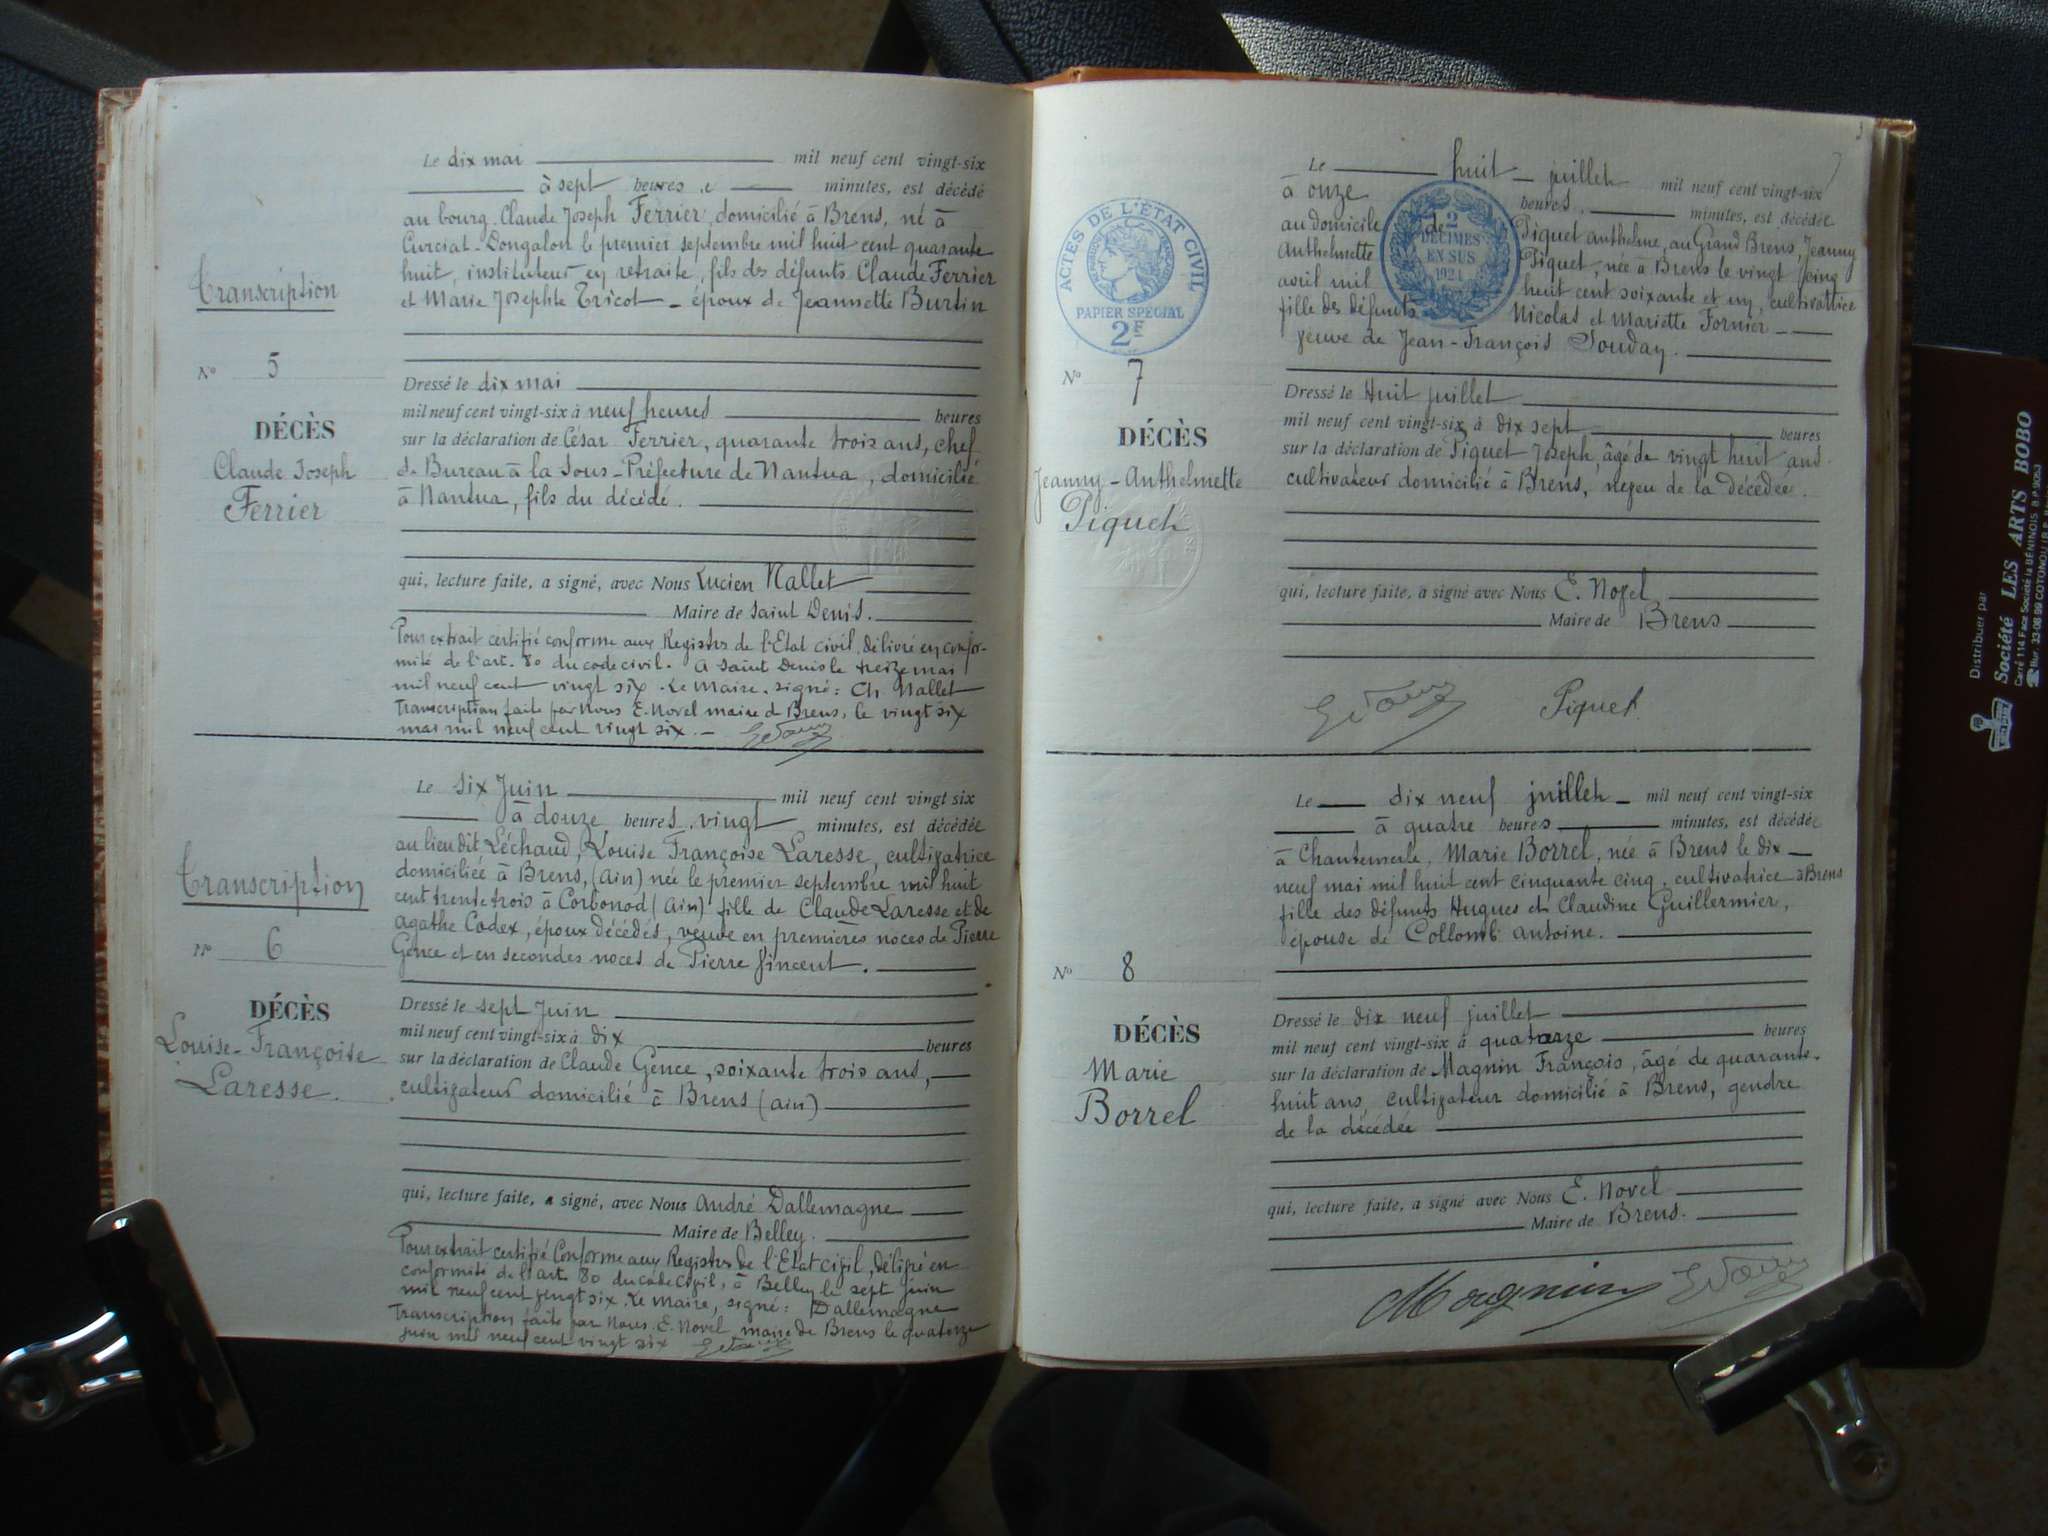 Le dix mai mil neuf cent vingt-six
à sept heures minutes, est décédé
au bourg Claude Joseph Ferrier, domicilié à Brens, né à
Curciat-Dongalon le premier septembre mil huit cent quarante
huit, instituteur en retraite, fils des défunts Claude Ferrier
et Marie Josephte Tricot - époux de Jeannette Burtin
Transcription
N° 5
DÉCÈS
Claude Joseph
Ferrier
Dressé le dix mai
mil neuf cent vingt-six à neuf heures heures
sur la déclaration de César Ferrier, quarante trois ans, chef
de Bureau à la Sous-Préfecture de Nantua, domicilié
à Nantua, fils du décédé.
qui, lecture faite, a signé, avec Nous Lucien Nallet
Maire de Saint Denis.
Pour extrait certifié conforme aux Registres de l'Etat civil, délivré en confor-
mité de l'art. 80 du code civil. A Saint Denis le treize mai
mil neuf cent vingt six. Le Maire, signé: Ch. Nallet
Transcription faite par Nous E. Novel maire de Brens, le vingt six
mai mil neuf cent vingt six. -
Le six Juin mil neuf cent vingt six
à douze heures vingt minutes, est décédée
au lieu dit Léchaud, Louise Françoise Laresse, cultivatrice
domiciliée à Brens, (Ain) née le premier septembre mil huit
cent trente trois à Corbonod (Ain) fille de Claude Laresse et de
Agathe Codex, époux décédés, veuve en premières noces de Pierre
Gence et en secondes noces de Pierre Vincent.
Transcription
N° 6
DÉCÈS
Louise-Françoise
Laresse.
Dressé le sept Juin
mil neuf cent vingt-six à dix heures
sur la déclaration de Claude Gence, soixante trois ans,
cultivateur domicilié à Brens (Ain)
qui, lecture faite, a signé, avec Nous André Dallemagne
Maire de Belley.
Pour extrait certifié Conforme aux Registres de l'Etat civil, délivré en
conformité de l'art. 80 du code civil, à Belley le sept juin
mil neuf cent vingt six. Le Maire, signé: Dallemagne
Transcription faite par Nous E. Novel maire de Brens le quatorze
juin mil neuf cent vingt six
Le huit juillet mil neuf cent vingt-six
à onze heures minutes, est décédée
au domicile de Piquet Anthelme, au Grand Brens, Jeanny
Anthelmette Piquet, née à Brens le vingt cinq
avril mil huit cent soixante et un, cultivatrice
fille des défunts Nicolas et Mariette Fornier
veuve de Jean-François Douday.
ACTES DE L'ÉTAT CIVIL
PAPIER SPÉCIAL
2F
2
DÉCIMES
EN SUS
1924
N° 7
DÉCÈS
Jeanny-Anthelmette
Piquet
Dressé le Huit juillet
mil neuf cent vingt-six à dix sept heures
sur la déclaration de Piquet Joseph, âgé de vingt huit ans
cultivateur domicilié à Brens, neveu de la décédée.
qui, lecture faite, a signé avec Nous E. Novel
Maire de Brens
Piquet
Le dix neuf juillet mil neuf cent vingt-six
à quatre heures minutes, est décédée
à Chantemerle, Marie Borrel, née à Brens le dix
neuf mai mil huit cent cinquante cinq, cultivatrice à Brens
fille des défunts Hugues et Claudine Guillermier,
épouse de Collomb Antoine.
N° 8
DÉCÈS
Marie
Borrel
Dressé le dix neuf juillet
mil neuf cent vingt-six à quatorze heures
sur la déclaration de Magnin François, âgé de quarante-
huit ans, cultivateur domicilié à Brens, gendre
de la décédée
qui, lecture faite, a signé avec Nous E. Novel
Maire de Brens.
Magnin
Distribuer par
Société LES ARTS BOBO